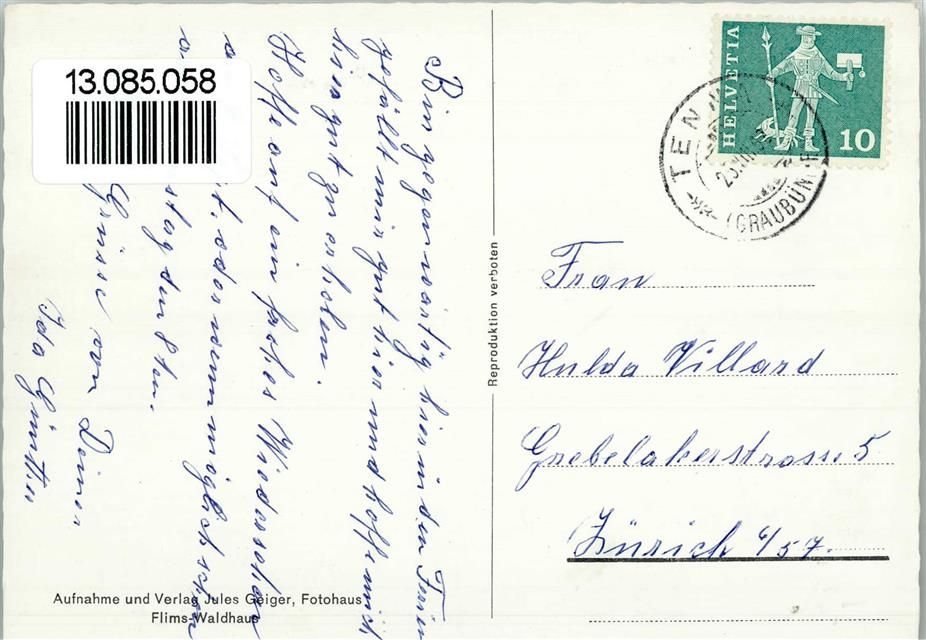 13.085.058
Bin gegenwärtig hier in den Ferien
gefällt mir gut hier und hoffe mich
hier gut zu erholen.
Hoffe auf ein frohes Wiedersehen
oder wenn möglich schon
den 8ten.
Grüsse von Deiner
Ida
Aufnahme und Verlag Jules Geiger, Fotohaus
Flims-Waldhaus
Reproduktion verboten
HELVETIA
10
(GRAUBÜN
Frau
Hulda Villard
Grebelakerstrasse 5
Zürich 6/57.